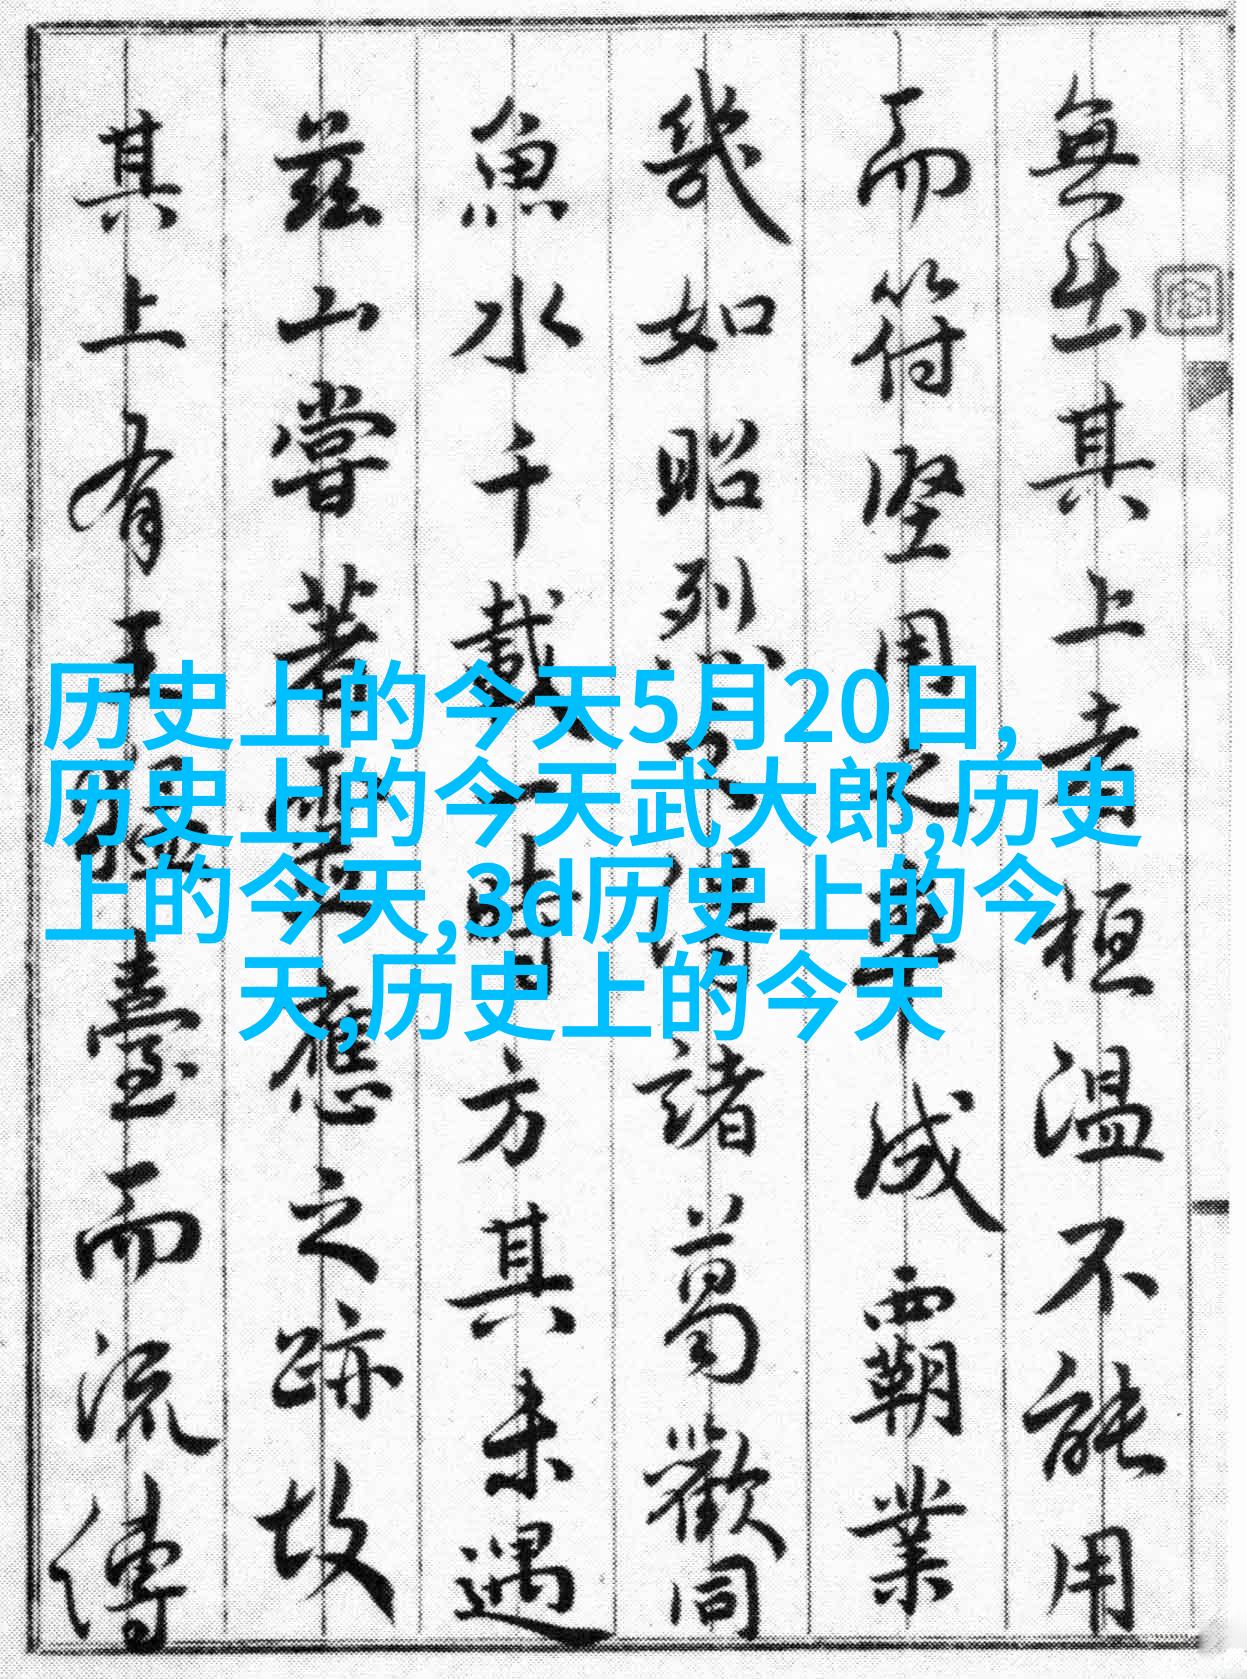 無出其上者桓溫不能用
而符堅用之卒成霸業
幾如昭烈之得諸葛歡同
魚水千載一時方其未遇
茲山嘗著靈應之跡故
其上有王猛臺而流傳
历史上的今天5月20日,
历史上的今天武大郎,历史
上的今天,3d历史上的今
天,历史上的今天